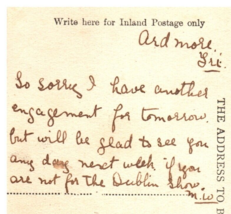 Write here for Inland Postage only
Ardmore.
Fri.
So sorry I have another
engagement for tomorrow.
but will be glad to see you
any day next week if you
are not for the Dublin show.
THE ADDRESS TO